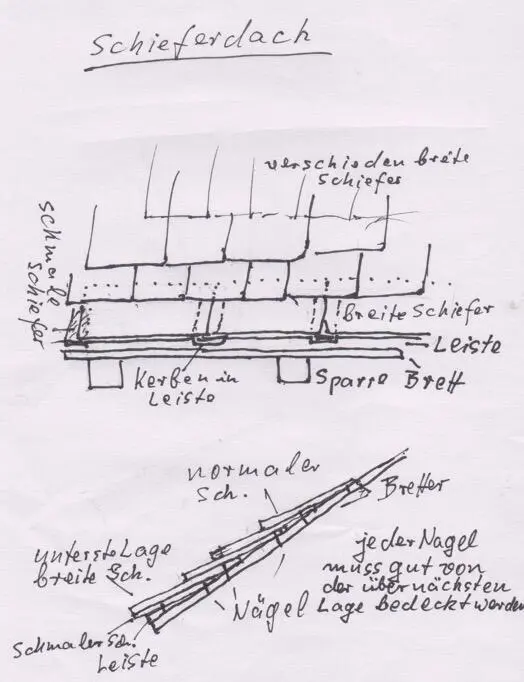 Schieferdach
verschieden breite
Schiefer
schmale
Schiefer
breite Schiefer
Leiste
Kerben in
Leiste
Sparre
Brett
normaler
Sch.
Bretter
unterste Lage
breite Sch.
jeder Nagel
muss gut von
der übernächsten
Lage bedeckt werden
Nägel
Schmaler Sch.
Leiste